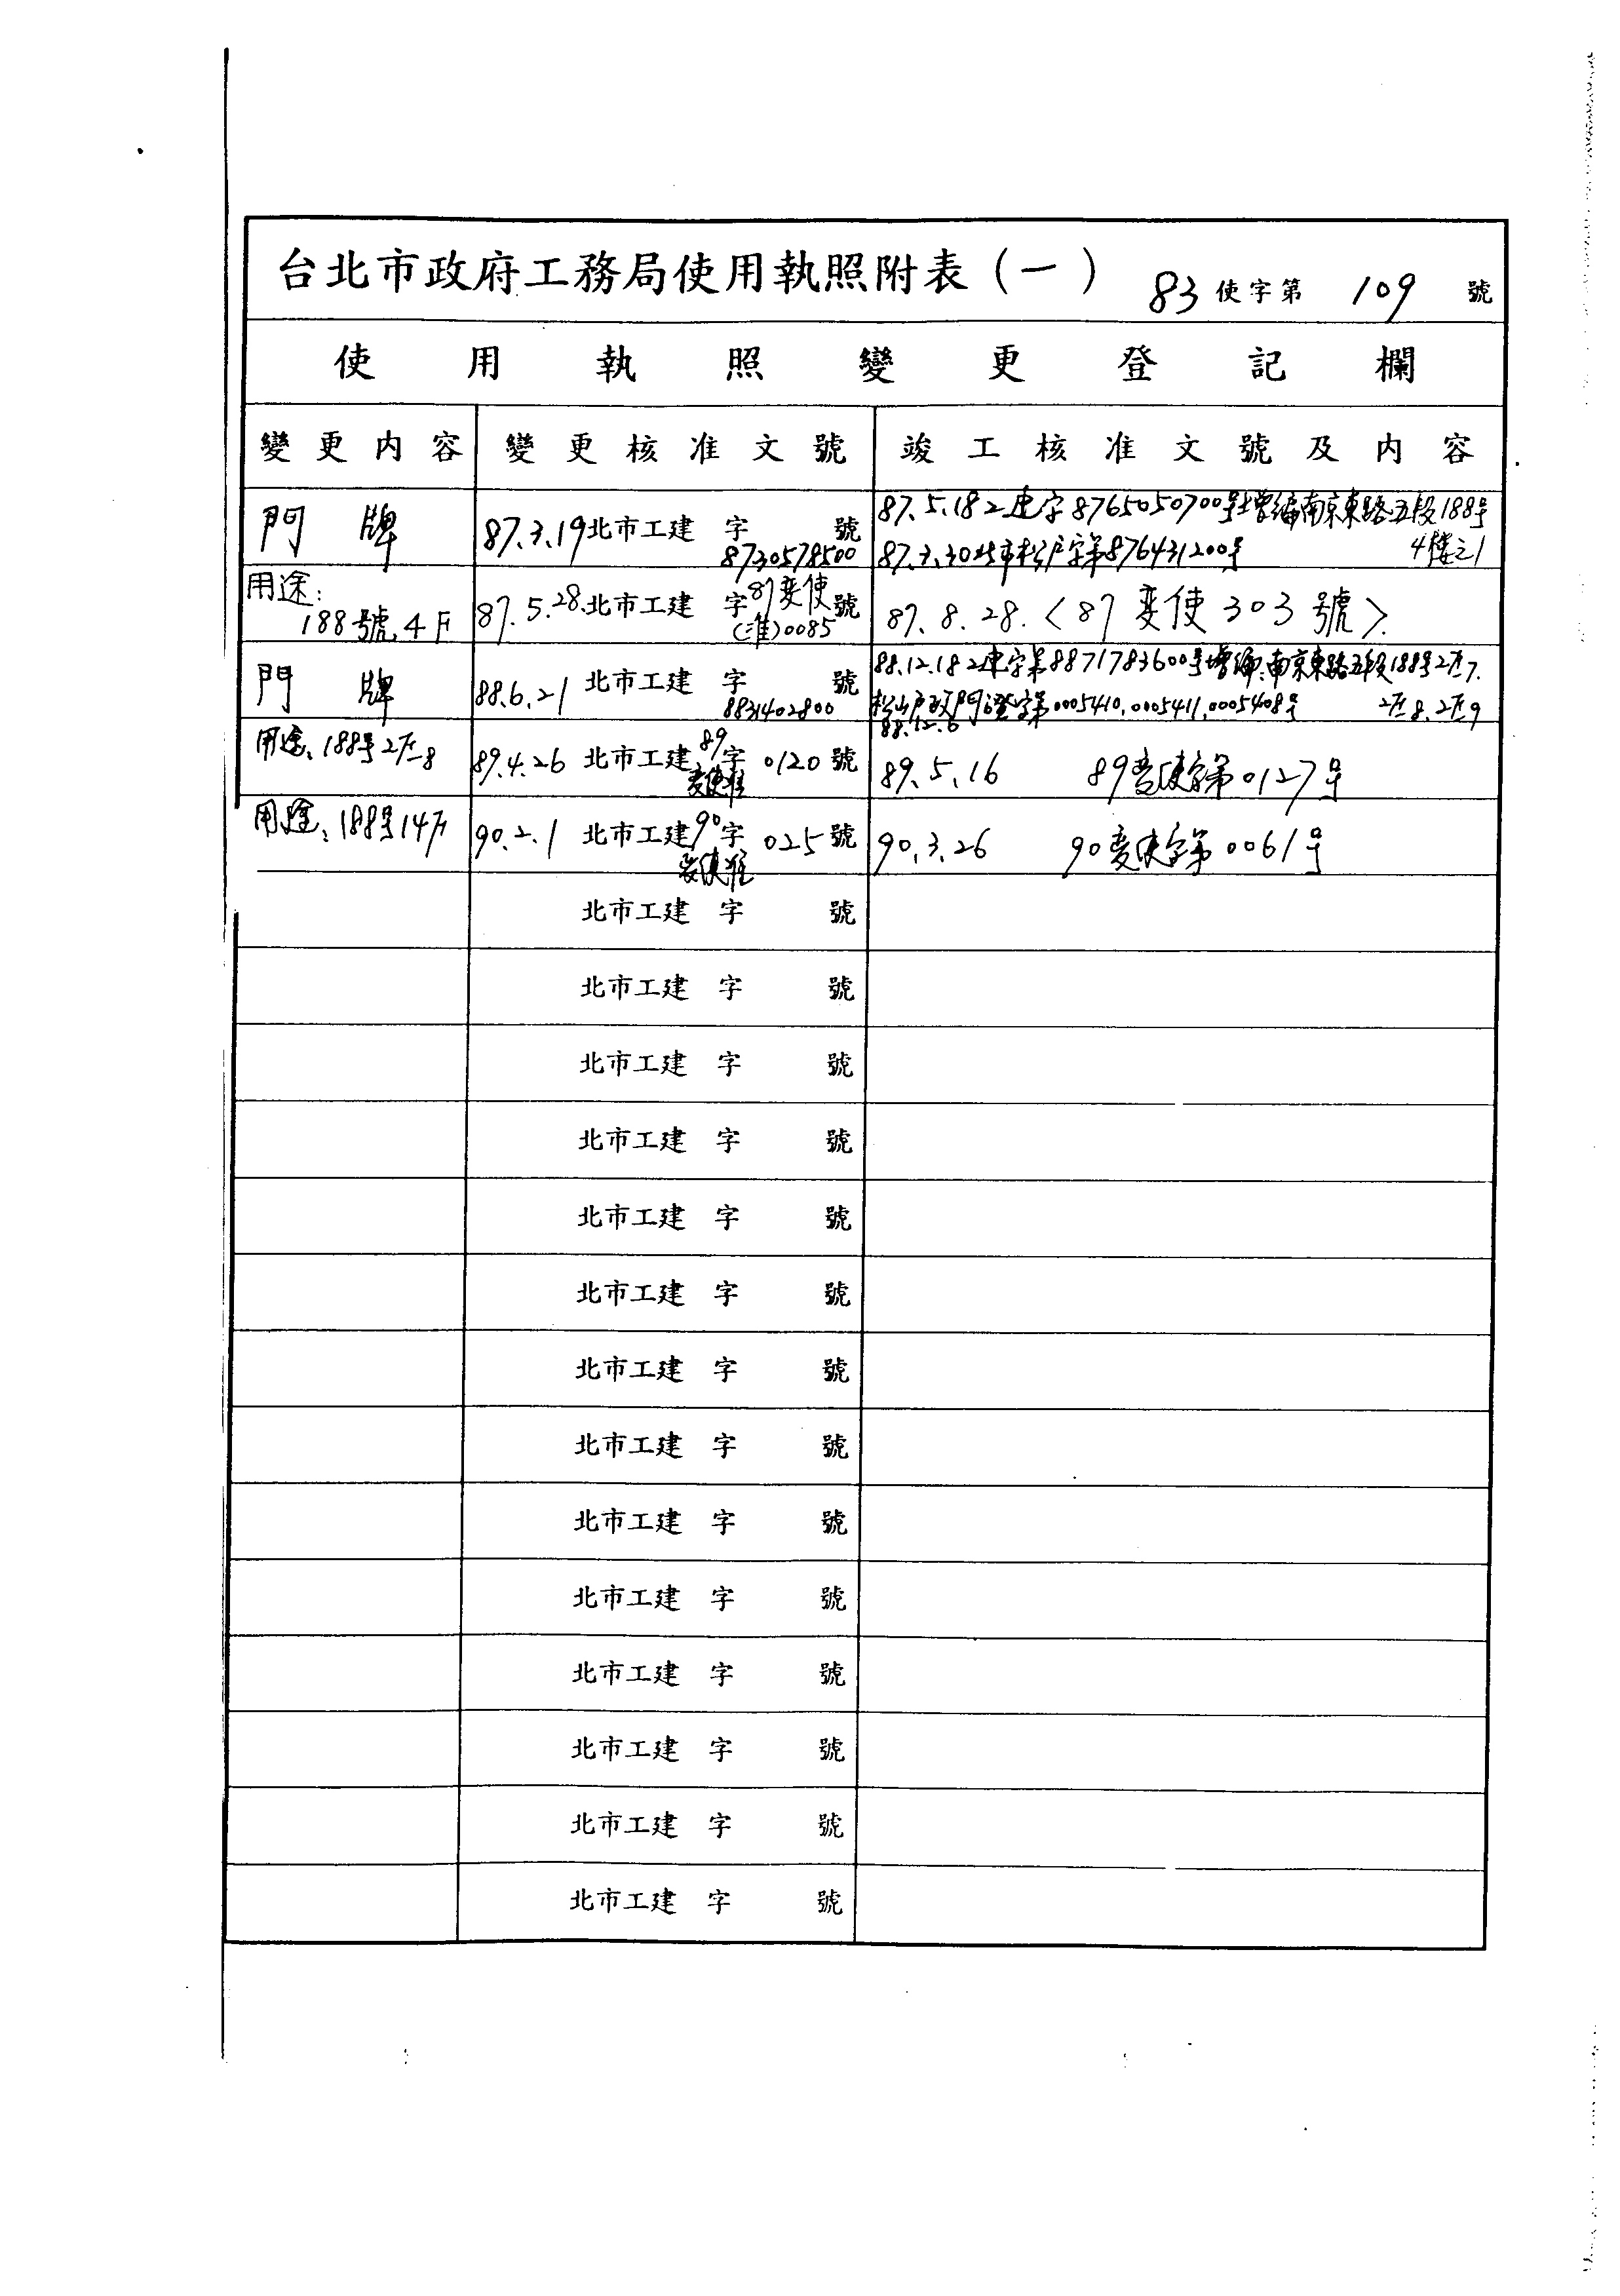 台北市政府工務局使用執照附表(一) 83 使字第 109 號
使用執照變更登記欄
變更內容 變更核准文號 竣工核准文號及內容
門牌 87.3.19 北市工建 字 8730578500 號 87.5.18 工建字8765050700号增編南京東路五段188号4樓之1
87.3.30北市松戶字第876431200号
用途:188號4F 87.5.28. 北市工建 字 87変使(准)0085 號 87.8.28.〈87変使303號〉.
門牌 88.6.21 北市工建 字 8831402800 號 88.12.18 工建字第8871783600号增編:南京東路五段188号2F之7.2F之8.2F之9
松山戶政門證字第0005410,0005411,0005408号
88.12.6
用途:188号2F之8 89.4.26 北市工建 89変使准 字 0120 號 89.5.16 89変使字第0127号
用途:188号14F 90.2.1 北市工建 90変使准 字 025 號 90.3.26 90変使字第0061号
北市工建 字 號
北市工建 字 號
北市工建 字 號
北市工建 字 號
北市工建 字 號
北市工建 字 號
北市工建 字 號
北市工建 字 號
北市工建 字 號
北市工建 字 號
北市工建 字 號
北市工建 字 號
北市工建 字 號
北市工建 字 號